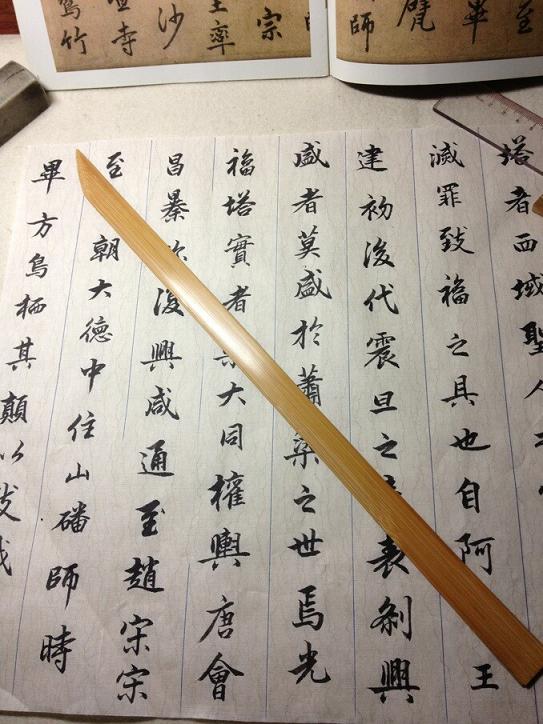 至
畢
師
宗
率
沙
寺
竹
塔者西域聖人
滅罪致福之具也自阿王
建初後代震旦之表刹興
盛者莫盛於蕭梁之世焉光
福塔實者大同權輿唐會
昌復興咸通至趙宋宗
至朝大德中住山磻師時
畢方鳥栖其顛以